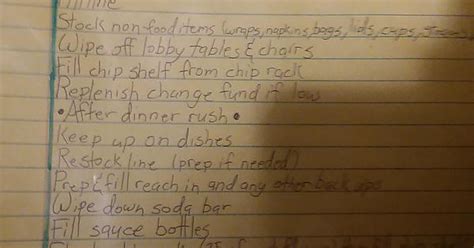 Stock non food items (wraps, napkins, bags, lids, cups,
Wipe off lobby tables & chairs
Fill chip shelf from chip rack
Replenish change fund if low
• After dinner rush •
Keep up on dishes
Restock line (prep if needed)
Prep & fill reach in and any other back ups
Wipe down soda bar
Fill sauce bottles